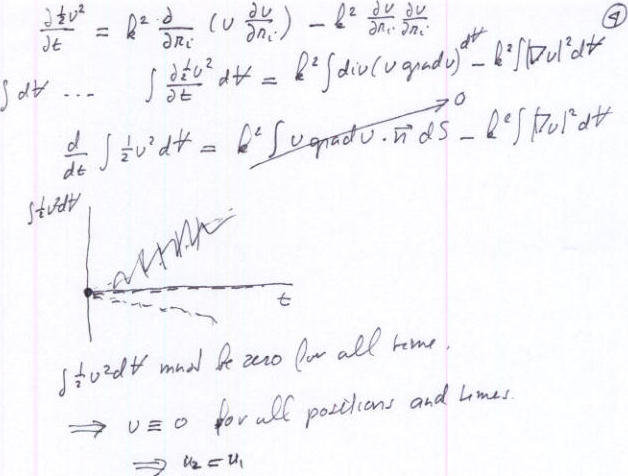 ④
∂½v²/∂t = k² ∂/∂xᵢ (v ∂v/∂xᵢ) − k² ∂v/∂xᵢ ∂v/∂xᵢ
∫dV ... ∫ ∂½v²/∂t dV = k² ∫ div(v grad v) dV − k² ∫|∇v|² dV
d/dt ∫ ½v² dV = k² ∫ v grad v · n⃗ dS − k² ∫|∇v|² dV
0
∫½v²dV
t
∫½v²dV must be zero for all time.
⟹ v ≡ 0 for all positions and times.
⟹ u₂ = u₁